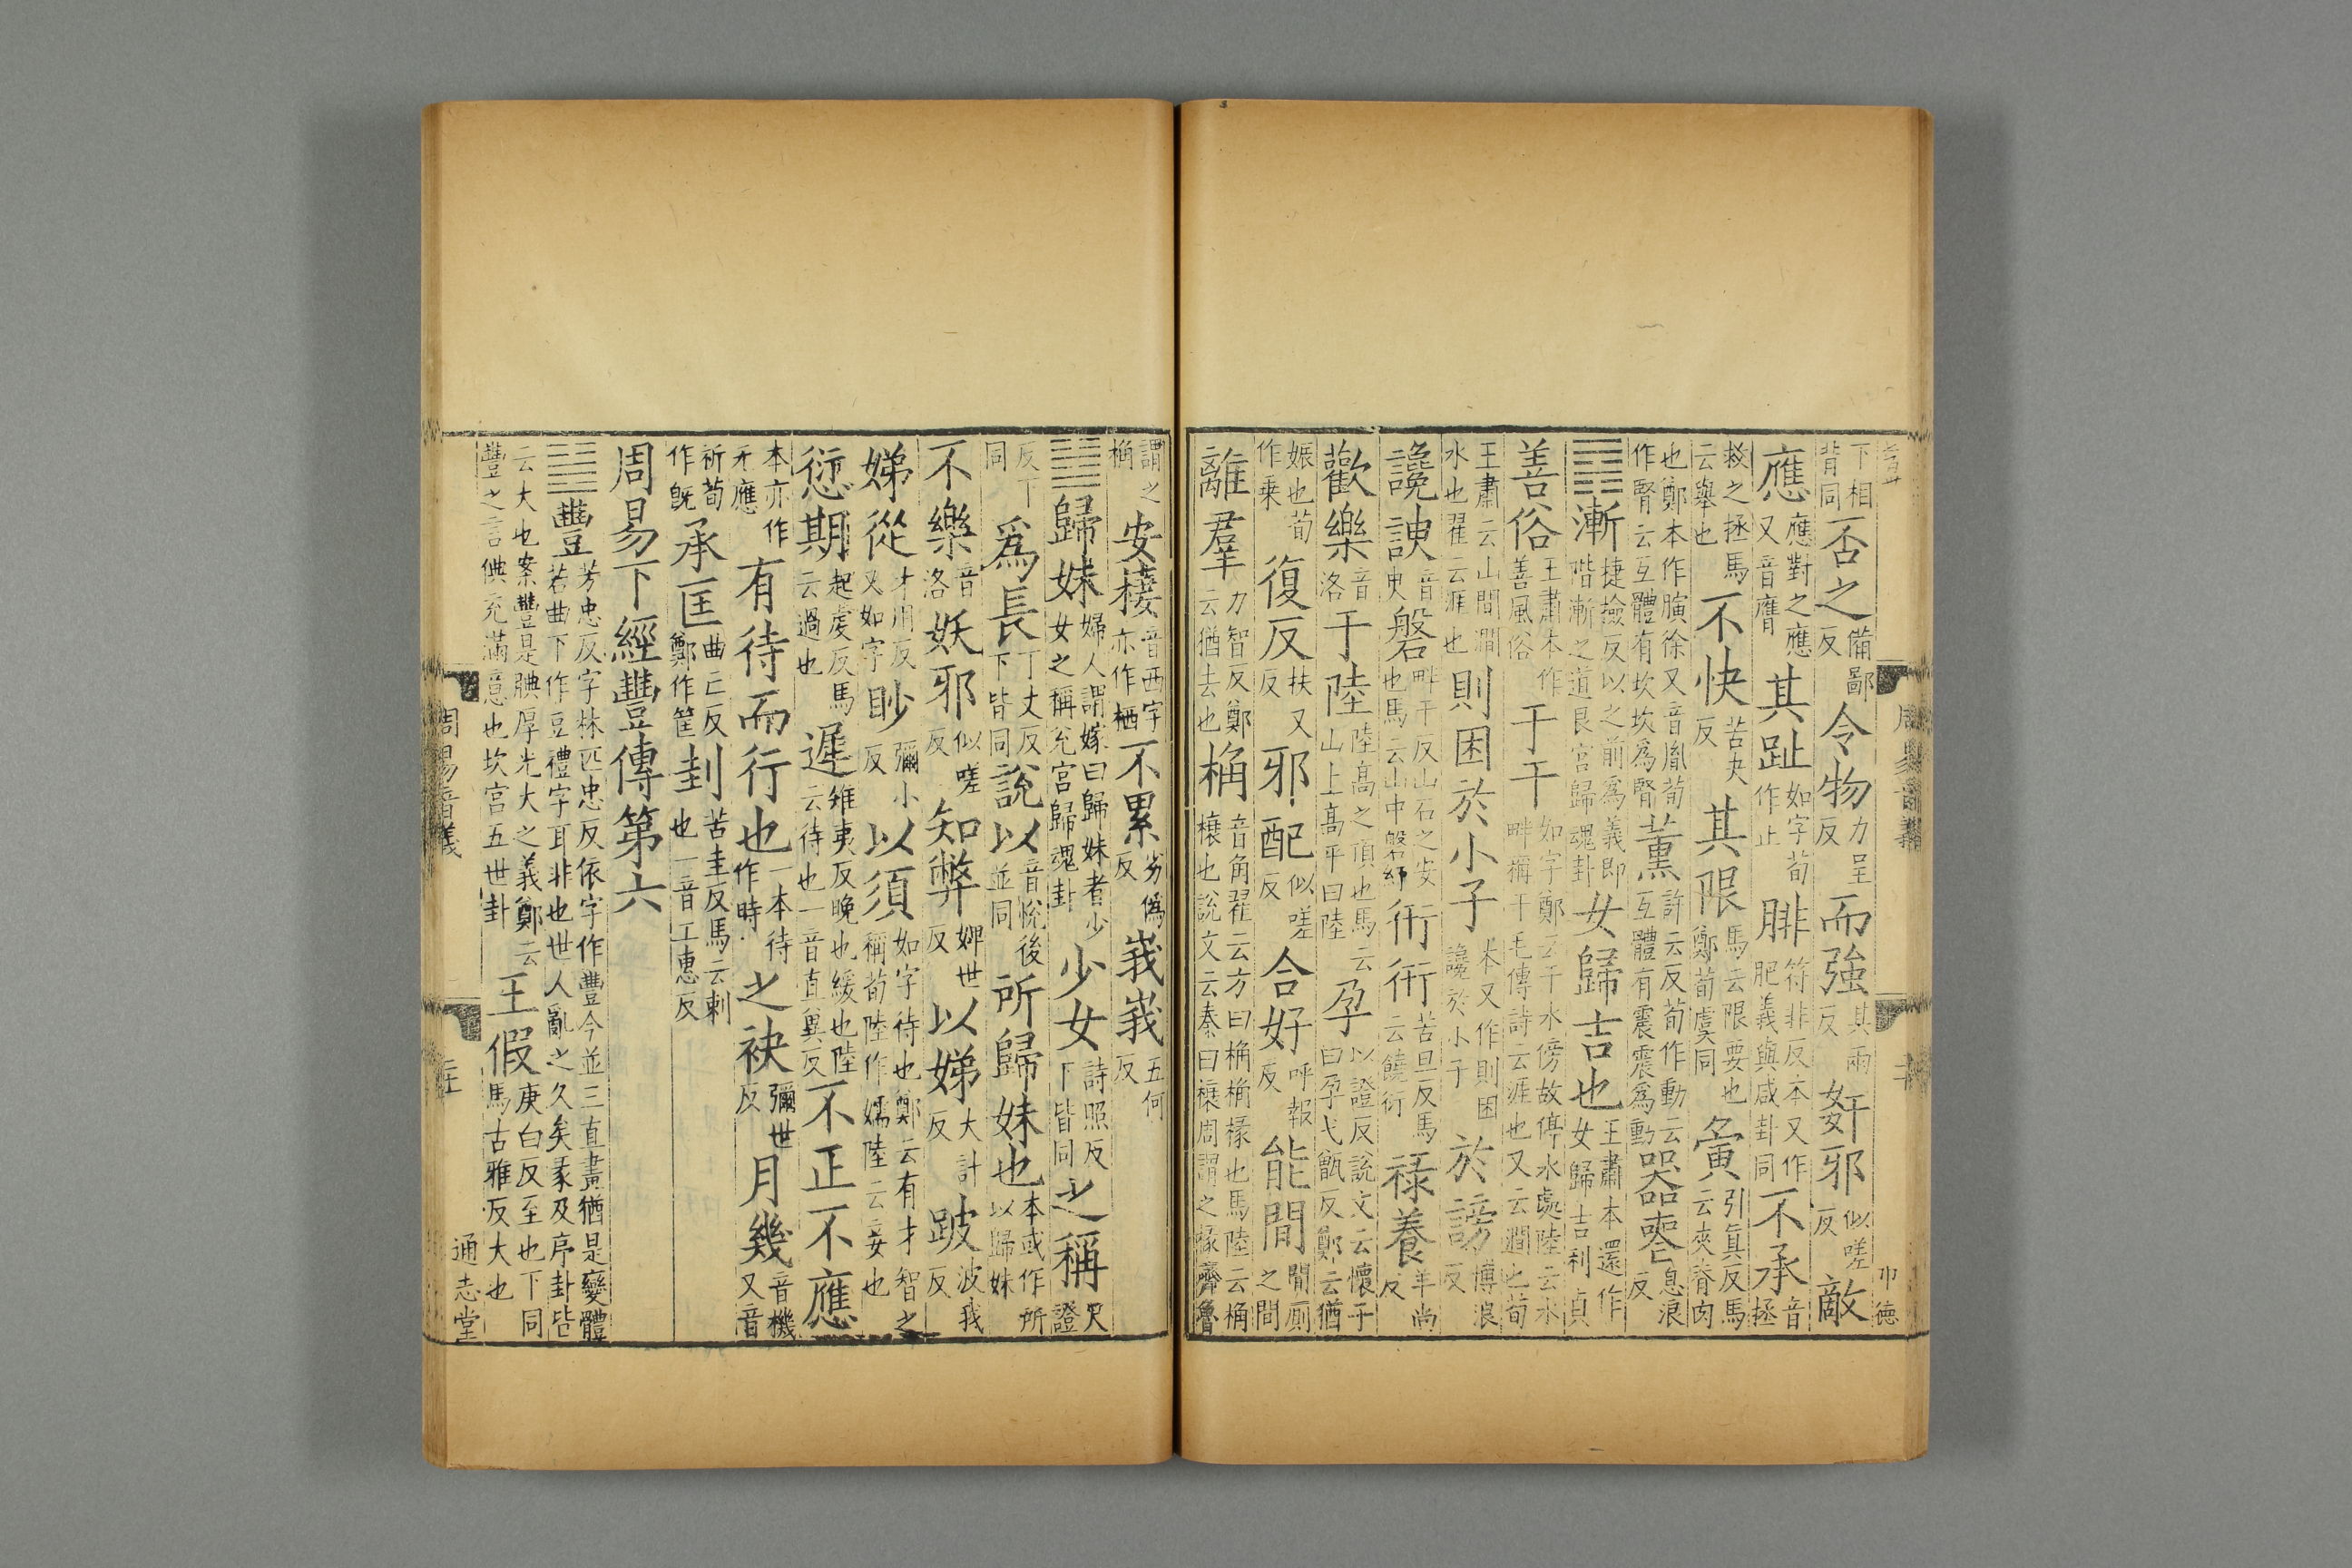 下相背同否之備鄙反令物力呈反而強其兩反姦邪似嗟反敵
應應對之應又音膺其趾如字荀作止腓符非反本又作肥義與咸卦同不承音拯
救之拯馬云舉也不快苦夬反其限馬云限要也鄭荀虞同夤引真反馬云夾脊肉
也鄭本作䏖徐又音胤荀作腎云互體有坎坎爲腎薰許云反荀作動云互體有震震爲動噐喪息浪反
䷴漸捷檢反以之前爲義即階漸之道艮宮歸魂卦女歸吉也王肅本還作女歸吉利貞
善俗王肅本作善風俗于干如字鄭云干水傍故停水處陸云水畔稱干毛傳詩云涯也又云澗也荀
王肅云山間澗水也翟云涯也則困於小子本又作則困讒於小子於謗博浪反
讒諛音臾磐畔干反山石之安也馬云山中磐紆衎衎苦旦反馬云饒衍祿養羊尚反
歡樂音洛于陸陸高之頂也馬云山上高平曰陸孕以證反說文云懷子曰孕弋甑反鄭云猶
娠也荀作乗復反扶又反邪配似嗟反合好呼報反能間閒厠之間
離羣力智反鄭云猶去也桷音角翟云方曰桷桷椽也馬陸云桷榱也說文云秦曰榱周謂之椽齊魯
謂之桷安棲音西字亦作栖不累劣僞反峩峩五何反
䷵歸妹婦人謂嫁曰歸妹者少女之稱兊宮歸魂卦少女詩照反下皆同之稱尺證
反下同爲長丁丈反下皆同說以音悅後並同所歸妹也本或作所以歸妹
不樂音洛妖邪似嗟反知弊婢世反以娣大計反跛波我反
娣從才用反又如字眇彌小反以須如字待也鄭云有才智之稱荀陸作嬬陸云妾也
愆期起虔反馬云過也遲雉夷反晚也緩也陸云待也一音直冀反不正不應
本亦作无應有待而行也一本待作時之袂彌世反月幾音機又音
祈荀作旣承匡曲亡反鄭作筐刲苦圭反馬云刺也一音工惠反
周易下經豐傳第六
䷶豐芳忠反字林匹忠反依字作豐今並三直畫猶是變體若曲下作豆禮字耳非也世人亂之久矣彖及序卦皆
云大也案豐是腆厚光大之義鄭云豐之言倎充滿意也坎宮五世卦王假庚白反至也下同馬古雅反大也
周易音義
通志堂